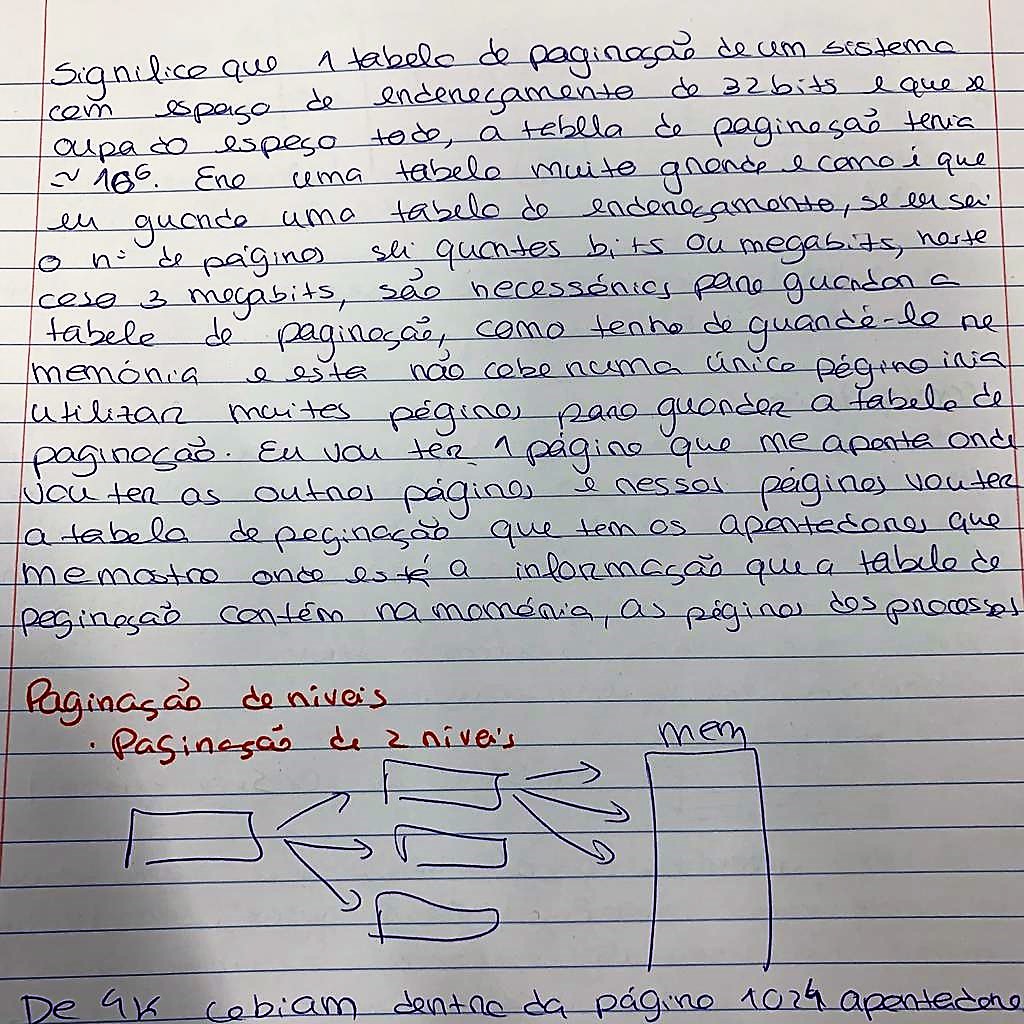 Significa que 1 tabela de paginação de um sistema
com espaço de endereçamento de 32 bits e que se
ocupado espaço todo, a tabela de paginação teria
≈ 10⁶. Era uma tabela muito grande e como é que
eu guardo uma tabela de endereçamento, se eu sei
o nº de páginas sei quantos bits ou megabits, neste
caso 3 megabits, são necessários para guardar a
tabela de paginação, como tenho de guardá-la na
memória e esta não cabe numa única página iria
utilizar muitas páginas para guardar a tabela de
paginação. Eu vou ter 1 página que me aponta onde
vou ter as outras páginas e nessas páginas vou ter
a tabela de paginação que tem os apontadores que
me mostra onde está a informação que a tabela de
paginação contém na memória, as páginas dos processos
Paginação de níveis
· Paginação de 2 níveis
mem
De 4K cabiam dentro da página 1024 apontadores